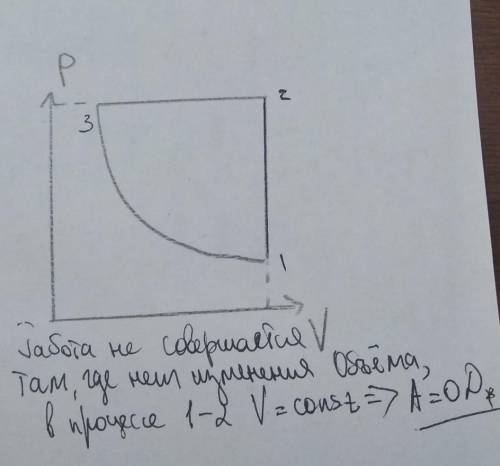 P
2
3
1
V
Работа не совершается
там, где нет изменения объёма,
в процессе 1-2 V = const => A = 0 Дж